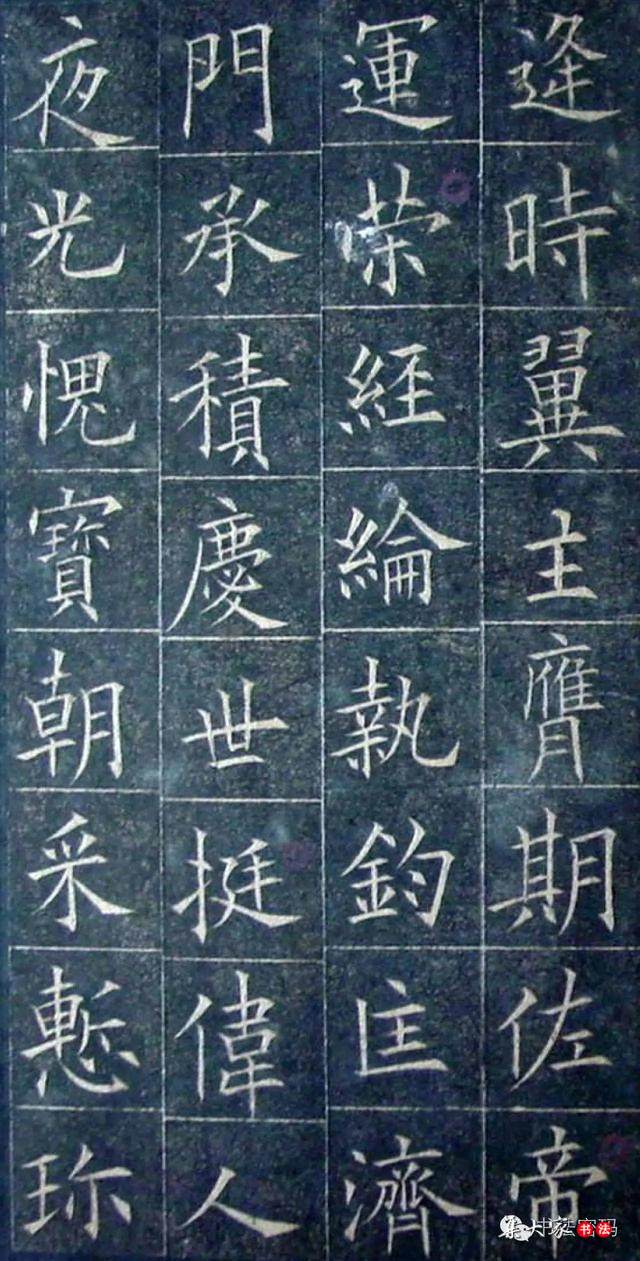 逄時翼主膺期佐帝
運荣經綸執鈞匡濟
門承積慶世挺偉人
夜光愧寶朝采慙珎
書法